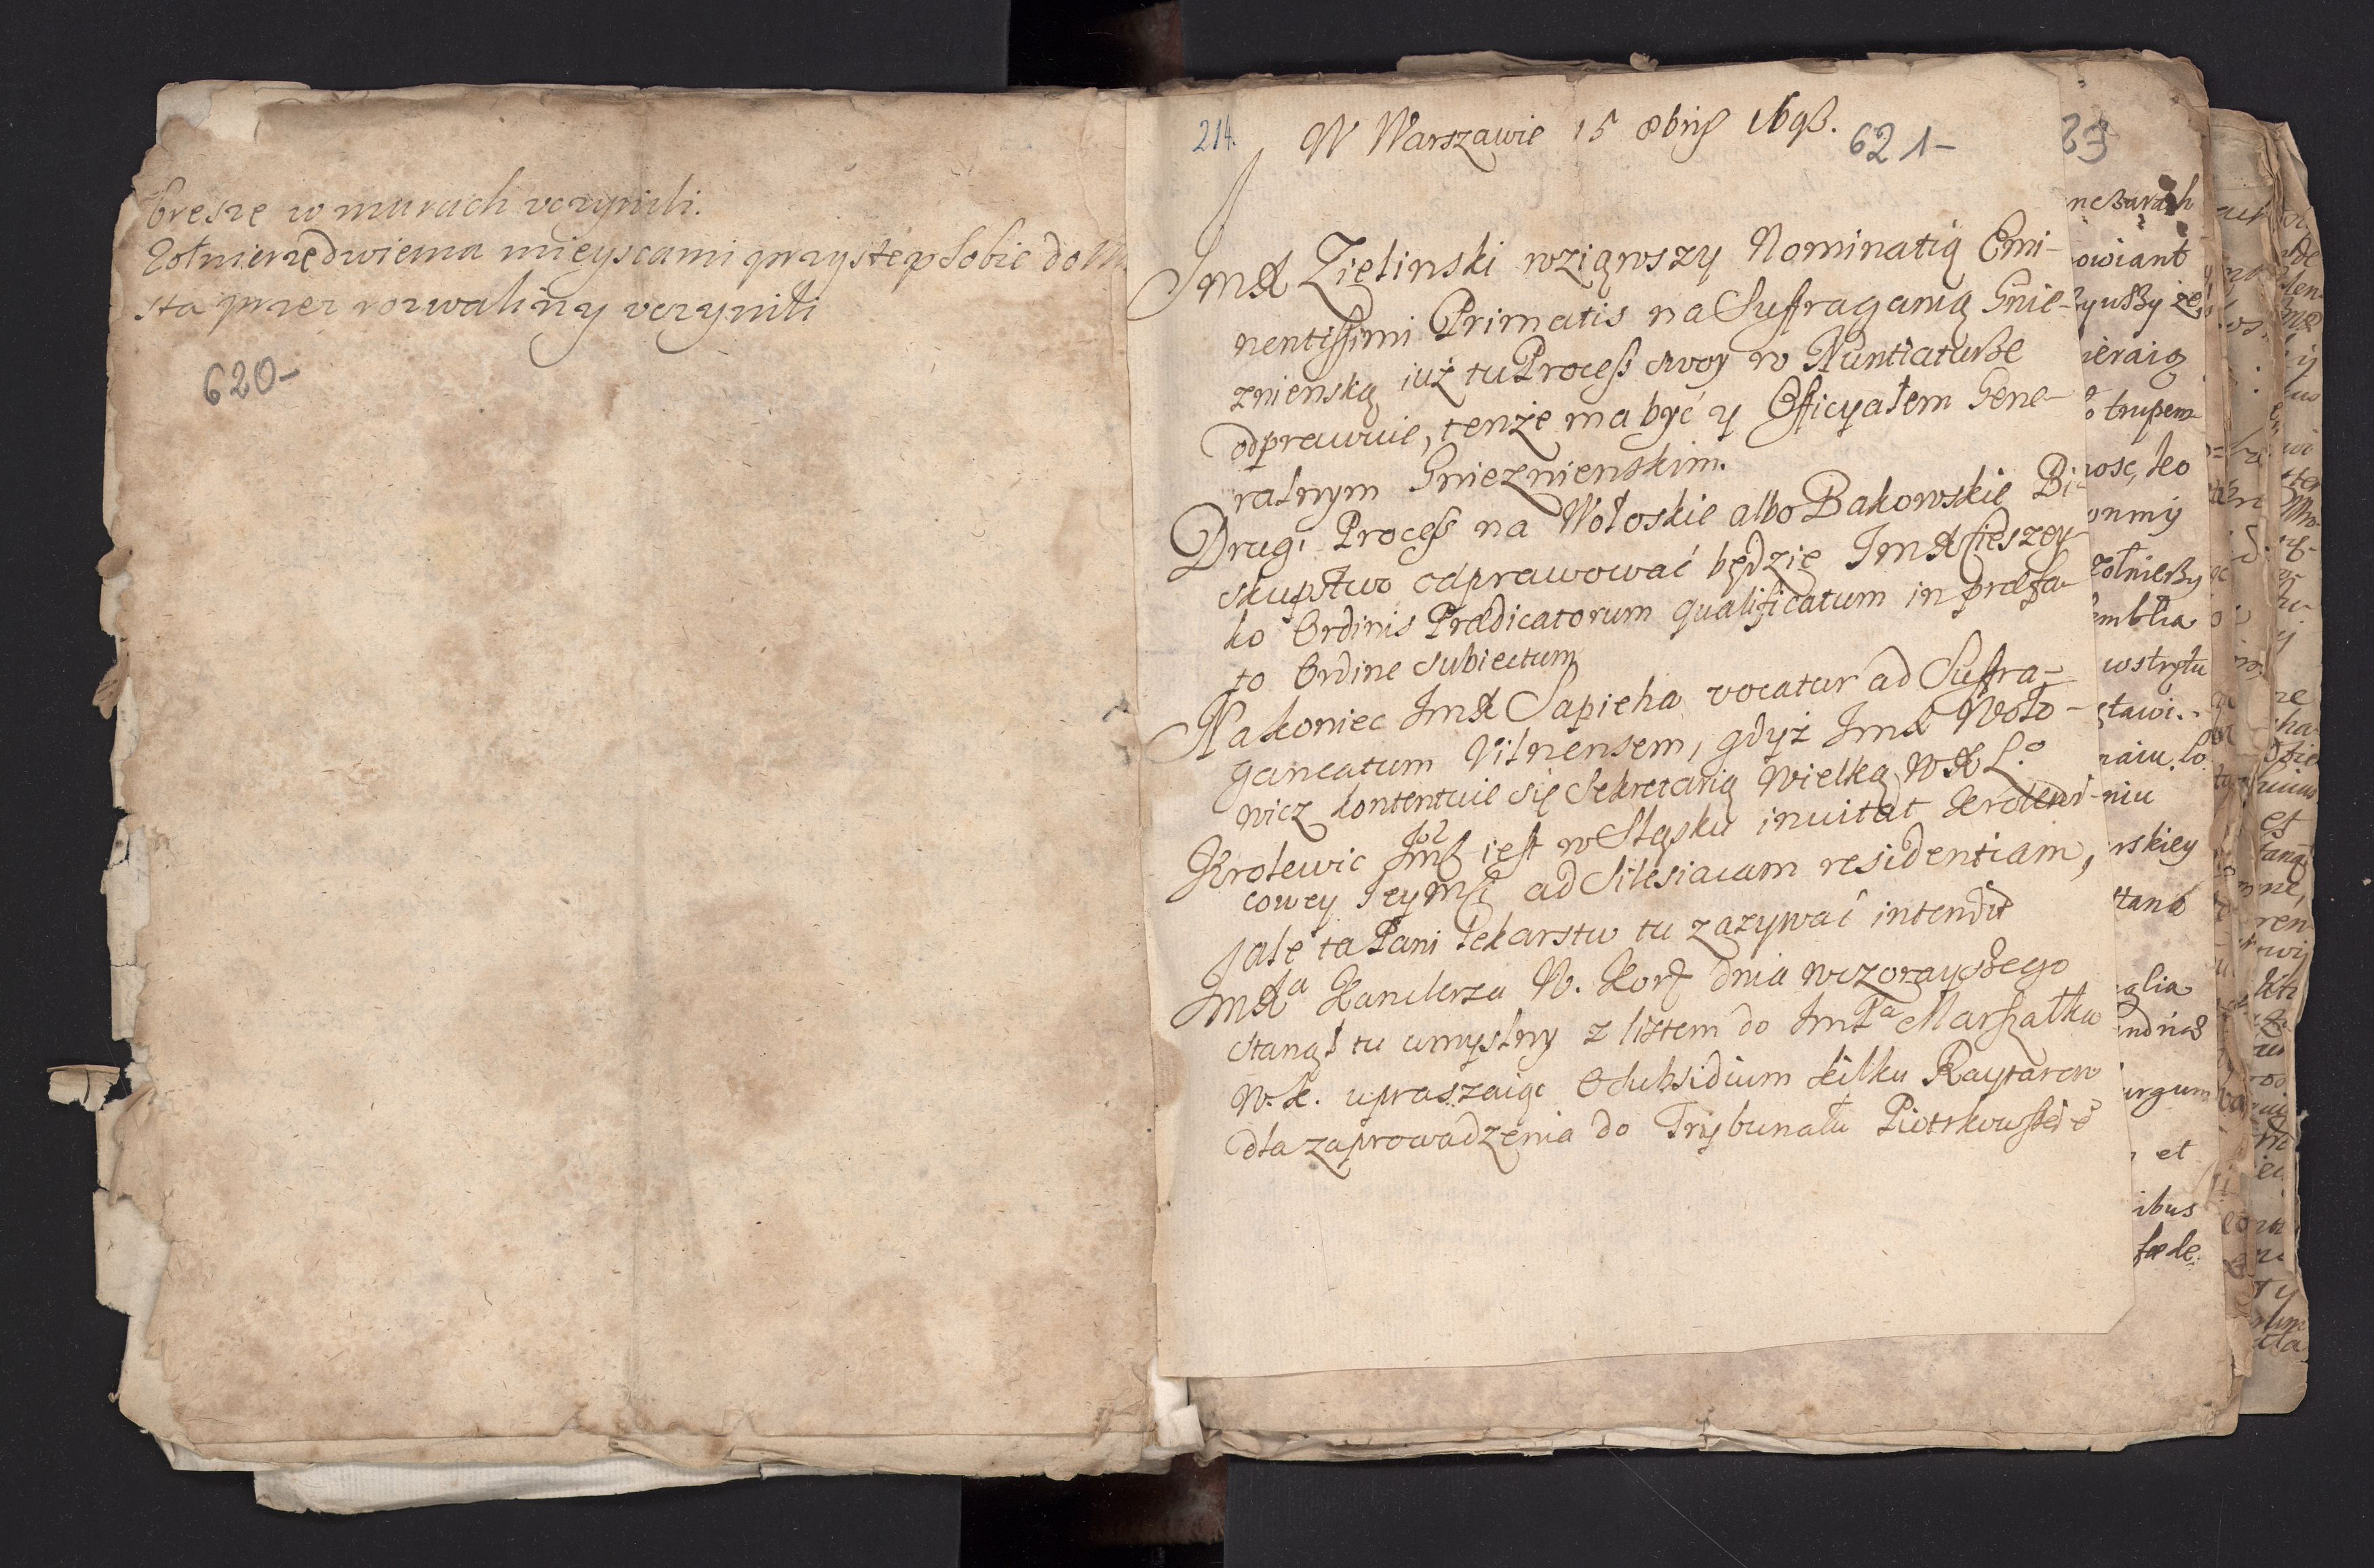 bresze w murach uczynili.
Zołnierze dwiema mieyscami przystęp sobie do
sta przez rozwaliny uczynili
620-
214.
W Warszawie 15 8bris 1698.
621-
JmX Zielinski wziąwszy Nominatią Emi-
nentissimi Primatis na Suffraganią Gnie-
znienską iuż tu Process swoy w Nuntiaturze
odprawuie, tenże ma być y Officyałem Gene-
ralnym Gnieznienskim.
Drugi Process na Wołoskie albo Bakowskie Bi-
skupstwo odprawować będzie JmX Cieszey-
ko Ordinis Prædicatorum qualificatum in præfa-
to Ordine subiectum
Nakoniec JmX Sapieha vocatur ad Suffra-
ganeatum Vilnensem, gdyż JmX Woło-
wicz kontentuie się Sekretarią Wielką WXLº
Krolewic Jmść iest w Sląsku inuitat Krolewi-
cowey Jeymści ad Silesiacam residentiam,
ale ta Pani lekarstw tu zazywać intendit
JmXa Kanclerza W. Kor. dnia wczorayszego
stanął tu umyslny z listem do JmPa Marszałka
W.K. upraszaiąc o subsidium kilku Raytarow
dla zaprowadzenia do Trybunału Piotrkowskie°